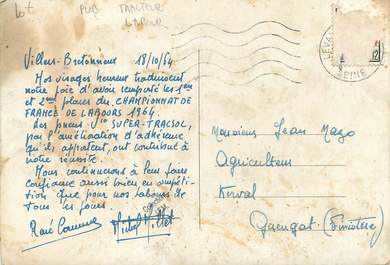 Lot
PUB. TRACTEUR
LABOUR
Villers-Bretonneux 18/10/64
Nos visages heureux traduisent
notre joie d'avoir remporté les 1ère
et 2ème places du CHAMPIONNAT DE
FRANCE DE LABOURS 1964.
Les pneus SUPER-TRACSOL,
par l'amélioration d'adhérence
qu'ils apportent, ont contribué à
notre réussite.
Nous continuerons à leur faire
confiance aussi bien en compéti-
tion que pour nos labours de
tous les jours
René Michel Millet
Monsieur Jean Mazo
Agriculteur
Kerval
Guengat (Finistère)
SEINE